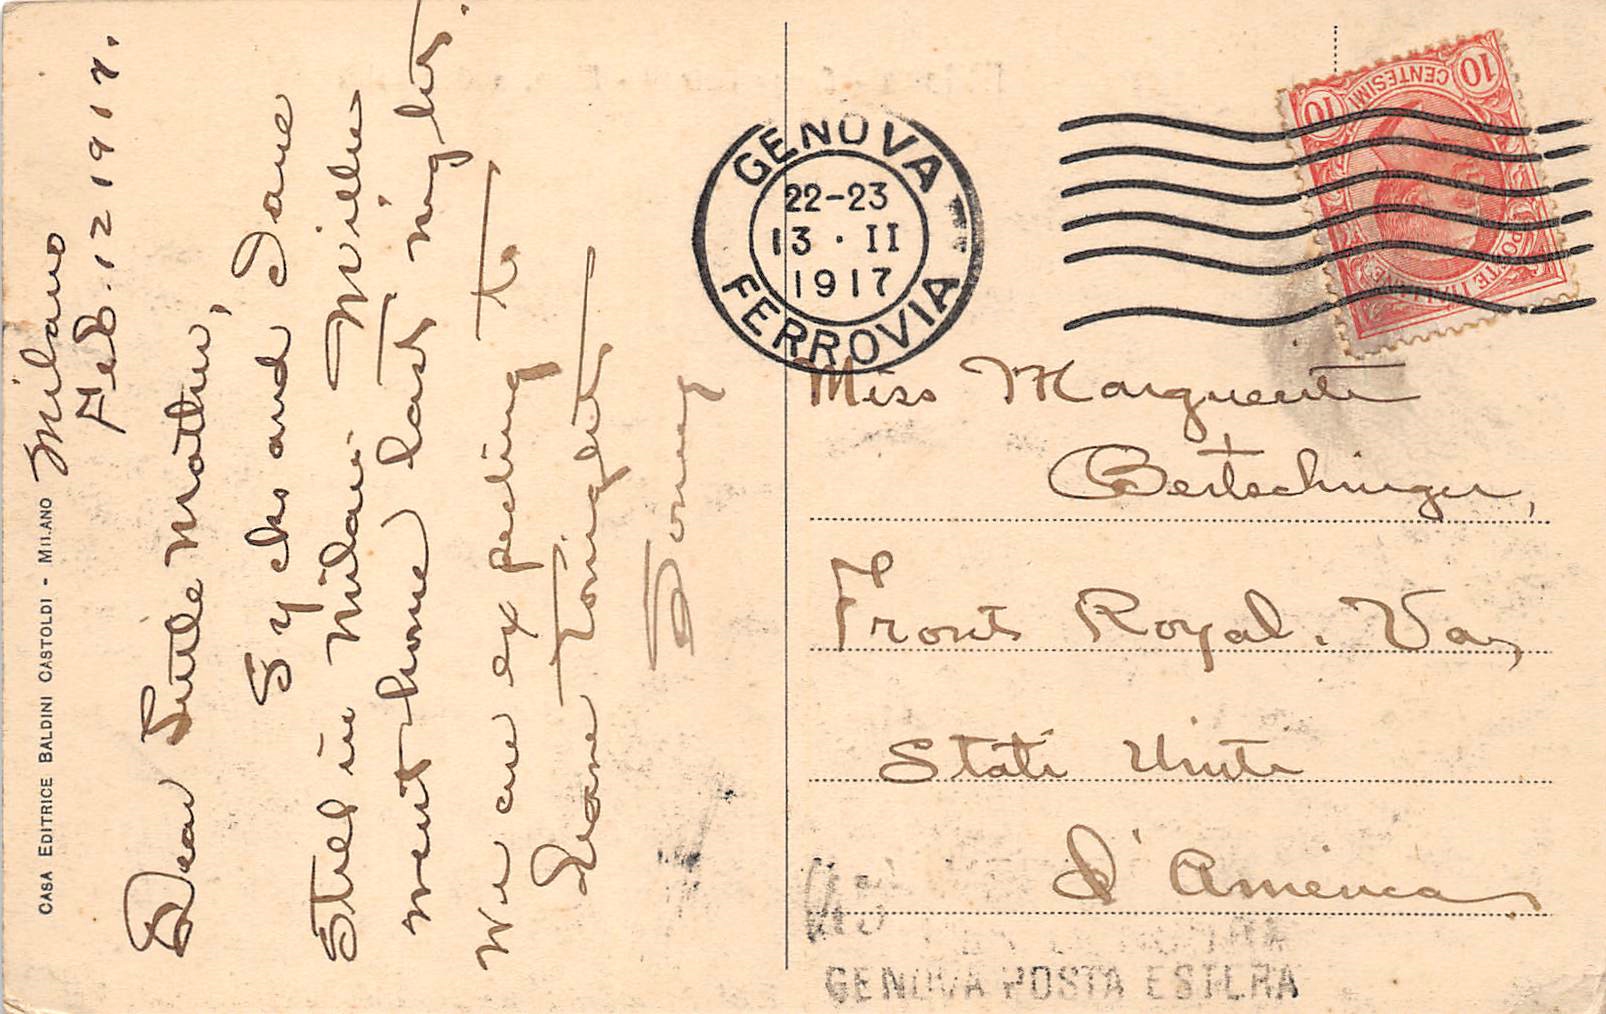 CASA EDITRICE BALDINI CASTOLDI - MILANO
Milano
Feb. 12 1917.
Dear Little Mother,
and I are
Still in Milan. Millie
went home last night.
We are expecting to
leave tonight
GENOVA
22-23
13 · II
1917
FERROVIA
10 CENTESIMI 10
POSTE ITALIANE
Miss Marguerite
Bertschinger,
Front Royal. Va,
Stati Uniti
d'America
GENOVA POSTA ESTERA